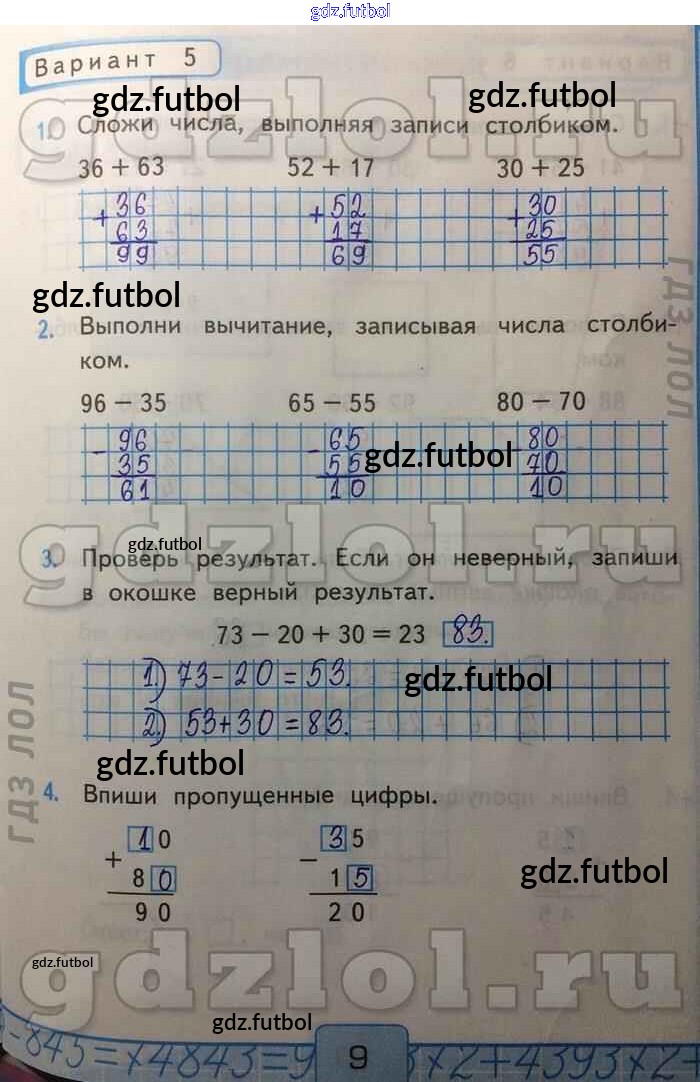 gdz.futbol
Вариант 5
gdz.futbol gdz.futbol
gdzlol.ru
1. Сложи числа, выполняя записи столбиком.
36 + 63 52 + 17 30 + 25
+ 36 + 52 + 30
63 17 25
99 69 55
gdz.futbol
ГДЗ ЛОЛ
2. Выполни вычитание, записывая числа столби-
ком.
96 − 35 65 − 55 80 − 70
- 96 - 65 - 80
35 55 gdz.futbol 70
61 10 10
gdzlol.ru
gdz.futbol
3. Проверь результат. Если он неверный, запиши
в окошке верный результат.
73 − 20 + 30 = 23 83.
1) 73-20=53.
gdz.futbol
2) 53+30=83.
ГДЗ ЛОЛ
gdz.futbol
4. Впиши пропущенные цифры.
+ 10 − 35
80 15
90 20
gdz.futbol
gdzlol.ru
gdz.futbol
gdz.futbol
-845=×4843=9 9 3×2+4393×2=